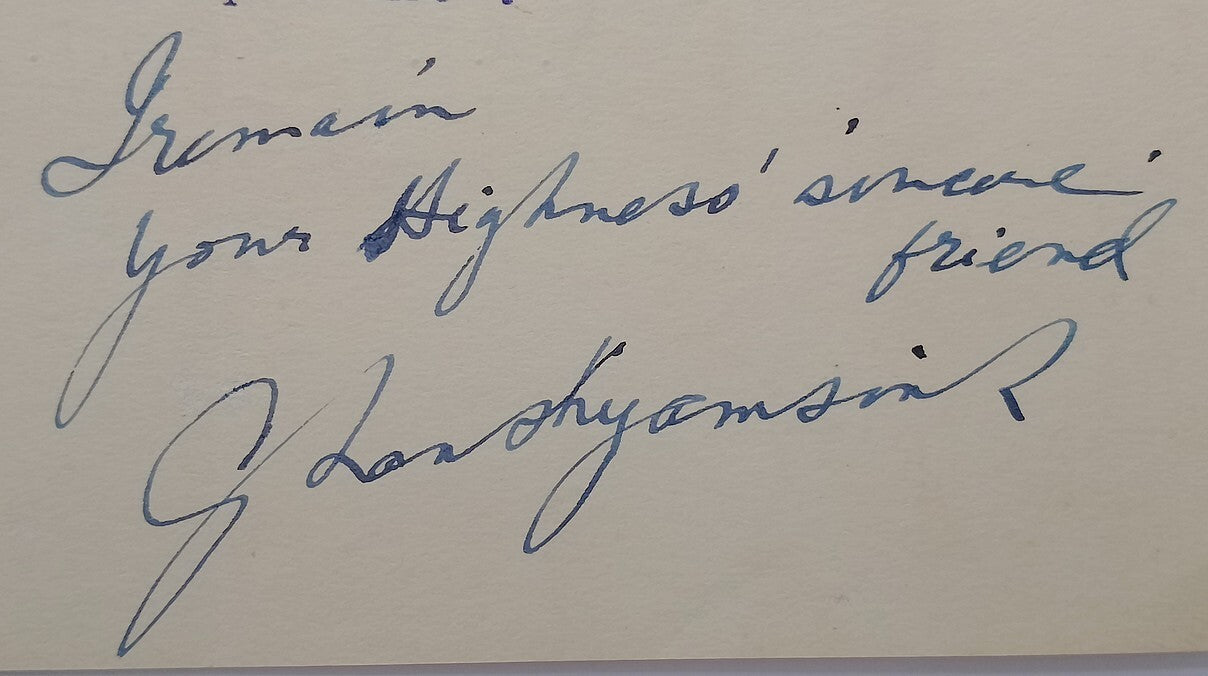 I remain
your Highness' sincere
friend
Ghanshyamsinh